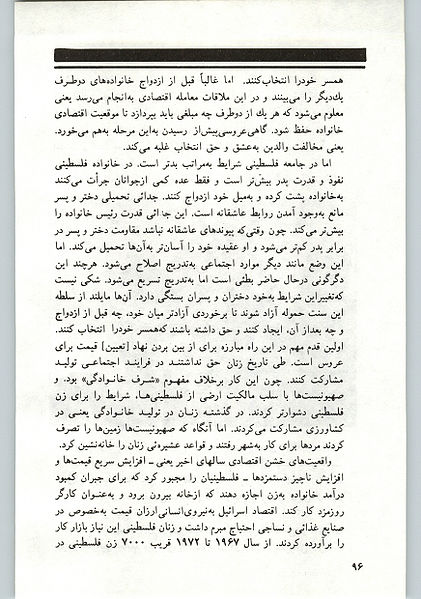 همسر خودرا انتخاب‌کنند. اما غالباً قبل از ازدواج خانواده‌های دوطرف
یك‌دیگر را می‌بینند و در این ملاقات معامله اقتصادی به‌انجام می‌رسد یعنی
معلوم می‌شود که هر یك از دوطرف چه مبلغی باید بپردازد تا موقعیت اقتصادی
خانواده حفظ شود. گاهی‌عروسی‌پیش‌از رسیدن به‌این مرحله به‌هم می‌خورد.
یعنی مخالفت والدین به‌عشق و حق انتخاب غلبه می‌کند.
اما در جامعه فلسطینی شرایط به‌مراتب بدتر است. در خانواده فلسطینی
نفوذ و قدرت پدر بیش‌تر است و فقط عده کمی ازجوانان جرأت می‌کنند
به‌خانواده پشت کرده و به‌میل خود ازدواج کنند. جدائی تحمیلی دختر و پسر
مانع به‌وجود آمدن روابط عاشقانه است. این جدائی قدرت رئیس خانواده را
بیش‌تر می‌کند. چون وقتی‌که پیوندهای عاشقانه نباشد مقاومت دختر و پسر در
برابر پدر کم‌تر می‌شود و او عقیده خود را آسان‌تر به‌آن‌ها تحمیل می‌کند. اما
این وضع مانند دیگر موارد اجتماعی به‌تدریج اصلاح می‌شود. هرچند این
دگرگونی درحال حاضر بطئی است اما به‌تدریج تسریع می‌شود. شکی نیست
که‌تغییراین شرایط به‌خود دختران و پسران بستگی دارد. آن‌ها مایلند از سلطه
این سنت حموله آزاد شوند تا برخوردی آزادتر میان خود، چه قبل از ازدواج
و چه بعداز آن، ایجاد کنند و حق داشته باشند که‌همسر خودرا انتخاب کنند.
اولین قدم مهم در این راه مبارزه برای از بین بردن نهاد [تعیین] قیمت برای
عروس است. طی تاریخ زنان حق نداشتند در فرایند اجتماعی تولید
مشارکت کنند. چون این کار برخلاف مفهوم «شرف خانوادگی» بود، و
صهیونیست‌ها با سلب مالکیت ارضی از فلسطینی‌ها، شرایط را برای زن
فلسطینی دشوارتر کردند. در گذشته زنان در تولید خانوادگی یعنی در
کشاورزی مشارکت می‌کردند. اما آنگاه که صهیونیست‌ها زمین‌ها را تصرف
کردند مردها برای کار به‌شهر رفتند و قواعد عشیره‌ئی زنان را خانه‌نشین کرد.
واقعیت‌های خشن اقتصادی سالهای اخیر یعنی ــ افزایش سریع قیمت‌ها و
افزایش ناچیز دستمزدها ــ فلسطینیان را مجبور کرد که برای جبران کمبود
درآمد خانواده به‌زن اجازه دهند که ازخانه بیرون برود و به‌عنوان کارگر
روزمزد کار کند. اقتصاد اسرائیل به‌نیروی‌انسانی‌ارزان قیمت به‌خصوص در
صنایع غذائی و نساجی احتیاج مبرم داشت و زنان فلسطینی این نیاز بازار کار
را برآورده کردند. از سال ۱۹۶۷ تا ۱۹۷۲ قریب ۷۰۰۰ زن فلسطینی در
۹۶